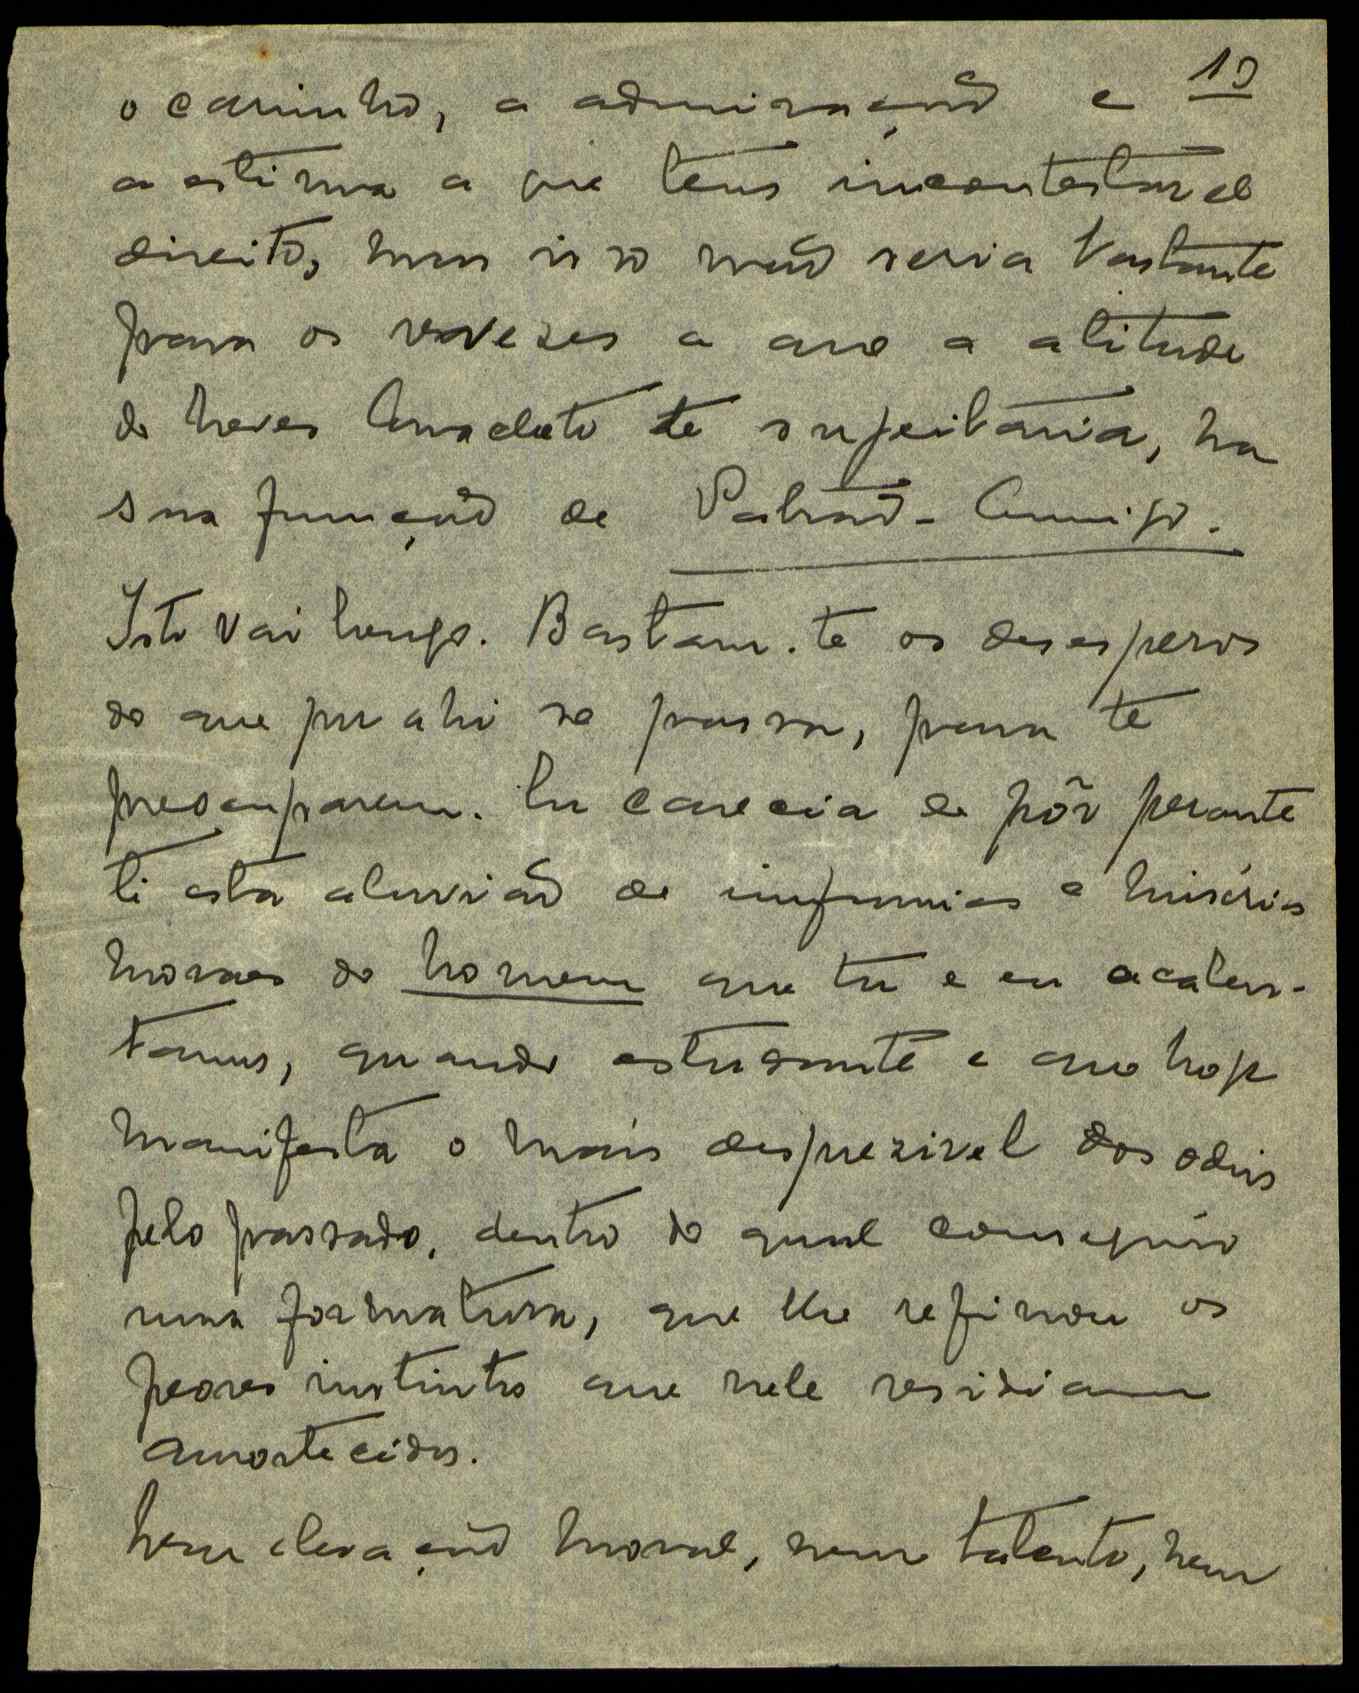 19
o carinho, a admiração e
a estima a que tens incontestavel
direito, mas isso não seria bastante
para os revezes a que a atitude
de Neves Anacleto te sujeitaria, na
sua função de Patrão-Amigo.
Isto vai longo. Bastam-te os desesperos
do que por ahi se passa, para te
preocuparem. Eu carecia de pôr perante
ti esta aluvião de infamias e misérias
moraes do homem que tu e eu acalen-
tamos, quando estudante e que hoje
manifesta o mais desprezivel dos odios
pelo passado, dentro do qual conseguiu
uma formatura, que lhe refinou os
peores instintos que nele residiam
amortecidos.
Nem elevação moral, nem talento, nem